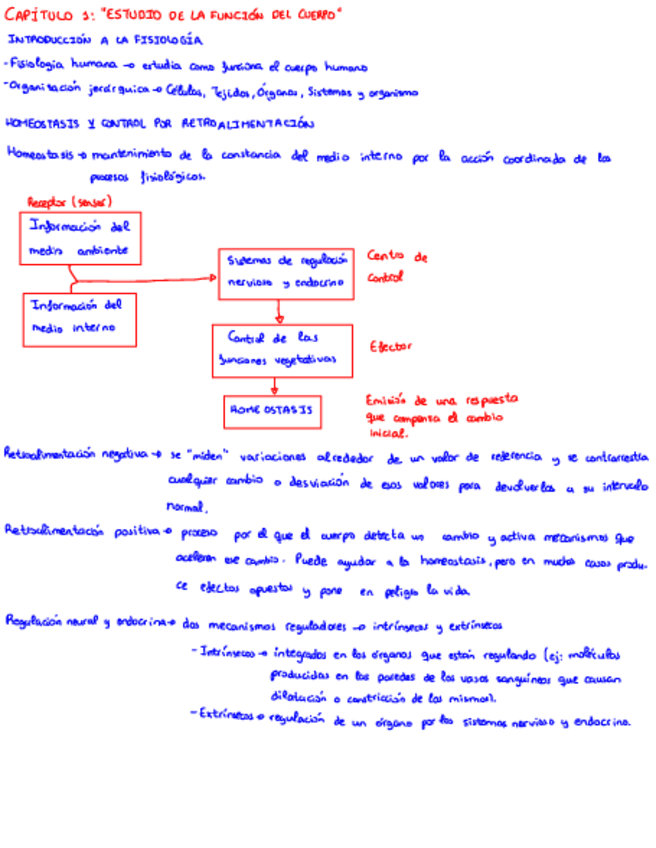 CAPÍTULO 1: "ESTUDIO DE LA FUNCIÓN DEL CUERPO"
INTRODUCCIÓN A LA FISIOLOGÍA
- Fisiología humana → estudia como funciona el cuerpo humano
- Organización jerárquica → Células, Tejidos, Órganos, Sistemas y organismo
HOMEOSTASIS Y CONTROL POR RETROALIMENTACIÓN
Homeostasis → mantenimiento de la constancia del medio interno por la acción coordinada de los
procesos fisiológicos.
Receptor (sensor)
Información del
medio ambiente
Información del
medio interno
Sistemas de regulación
nervioso y endocrino
Centro de
control
Control de las
funciones vegetativas
Efector
HOMEOSTASIS
Emisión de una respuesta
que compensa el cambio
inicial.
Retroalimentación negativa → se "miden" variaciones alrededor de un valor de referencia y se contrarresta
cualquier cambio o desviación de esos valores para devolverlos a su intervalo
normal.
Retroalimentación positiva → proceso por el que el cuerpo detecta un cambio y activa mecanismos que
aceleran ese cambio. Puede ayudar a la homeostasis, pero en muchos casos produ-
ce efectos opuestos y pone en peligro la vida.
Regulación neural y endocrina → dos mecanismos reguladores → intrínsecos y extrínsecos
- Intrínsecos → integrados en los órganos que están regulando (ej: moléculas
producidas en las paredes de los vasos sanguíneos que causan
dilatación o constricción de los mismos).
- Extrínsecos → regulación de un órgano por los sistemas nervioso y endocrino.